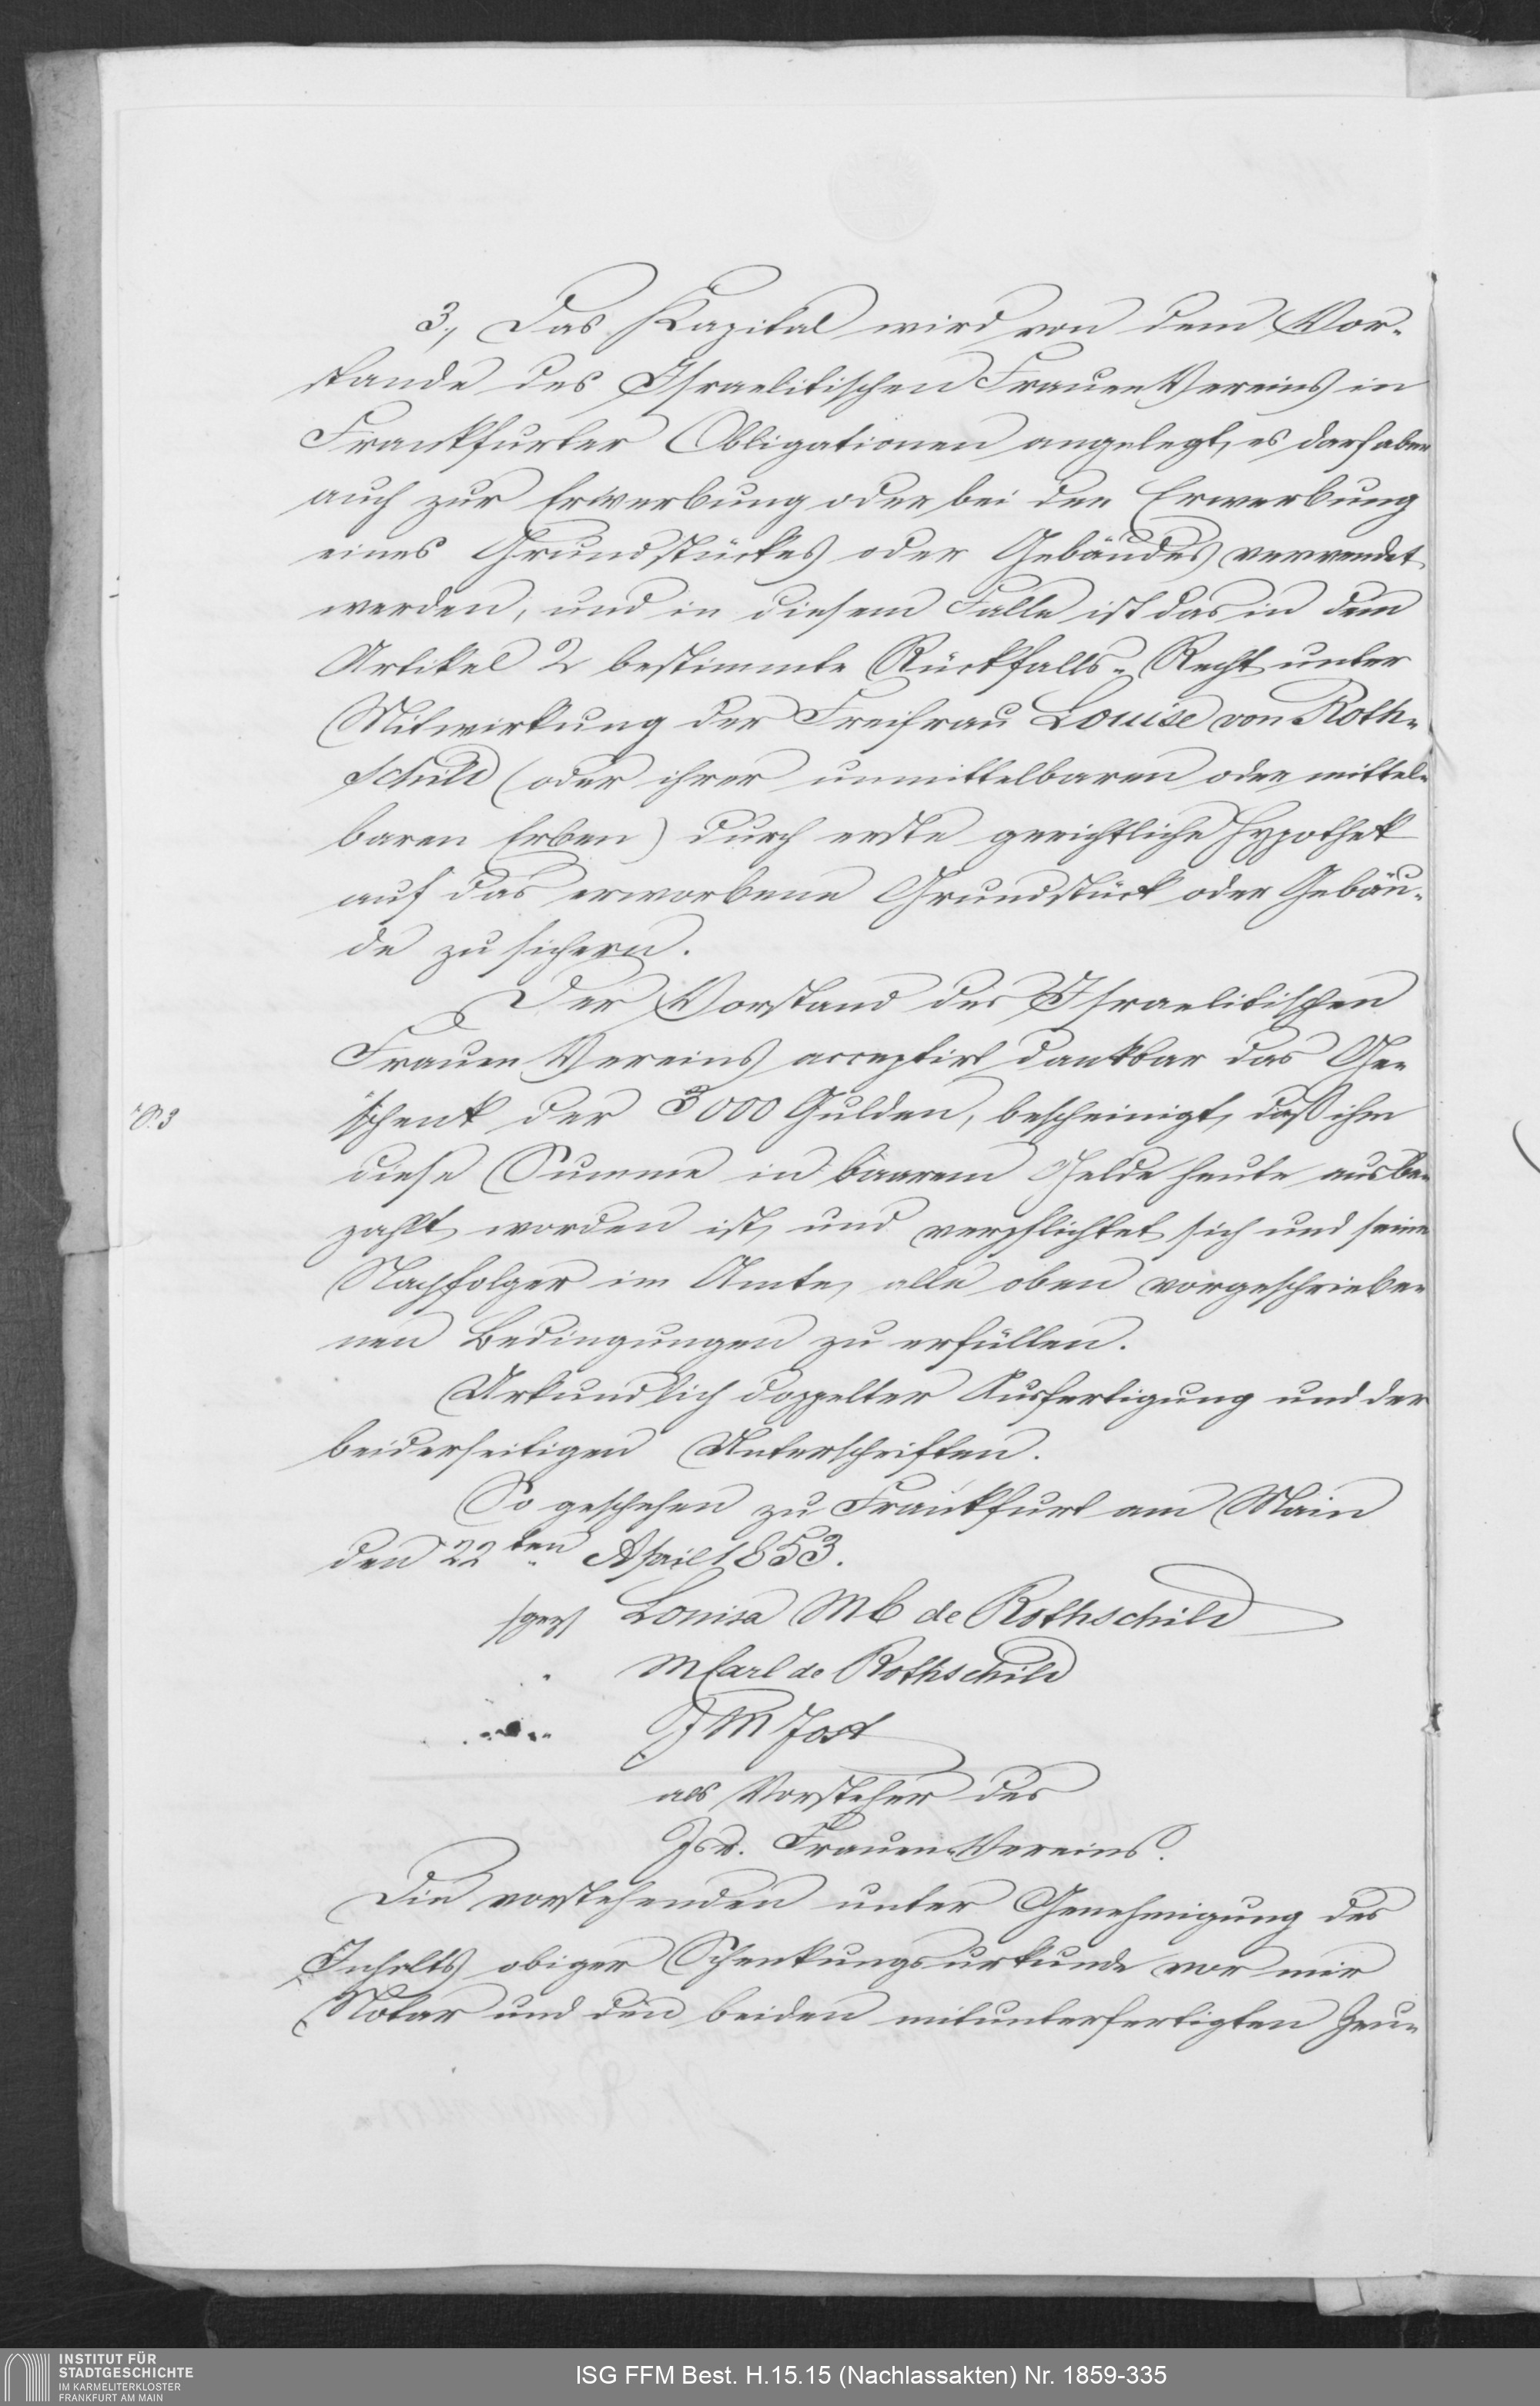 3., Das Kapital wird von dem Vor-
stande des Israelitischen Frauen Vereins in
Frankfurter Obligationen angelegt, es darf aber
auch zur Erwerbung oder bei der Erwerbung
eines Grundstückes oder Gebäudes verwendet
werden, und in diesem Falle ist das in dem
Artikel 2 bestimmte Rückfalls-Recht unter
Mitwirkung der Freifrau Louise von Roth-
schild (oder ihrer unmittelbaren oder mittel-
baren Erben) durch erste gerichtliche Hypothek
auf das erworbene Grundstück oder Gebäu-
de zu sichern.
Der Vorstand des Israelitischen
Frauen Vereins acceptirt dankbar das Ge-
schenk der 3000 Gulden, bescheinigt, daß ihm
diese Summe in baarem Gelde heute ausbe-
zahlt worden ist, und verpflichtet sich und seine
Nachfolger im Amte, alle oben vorgeschriebe-
nen Bedingungen zu erfüllen.
Urkundlich doppelter Ausfertigung und der
beiderseitigen Unterschriften.
So geschehen zu Frankfurt am Main
den 22ten April 1853.
/gez/ Louisa M C de Rothschild
" M Carl de Rothschild
" J M Jost
als Vorsteher des
Isr. Frauen-Vereins.
Die vorstehenden unter Genehmigung des
Inhalts obiger Schenkungsurkunde vor mir
Notar und den beiden mitunterfertigten Zeu-
INSTITUT FÜR
STADTGESCHICHTE
IM KARMELITERKLOSTER
FRANKFURT AM MAIN
ISG FFM Best. H.15.15 (Nachlassakten) Nr. 1859-335